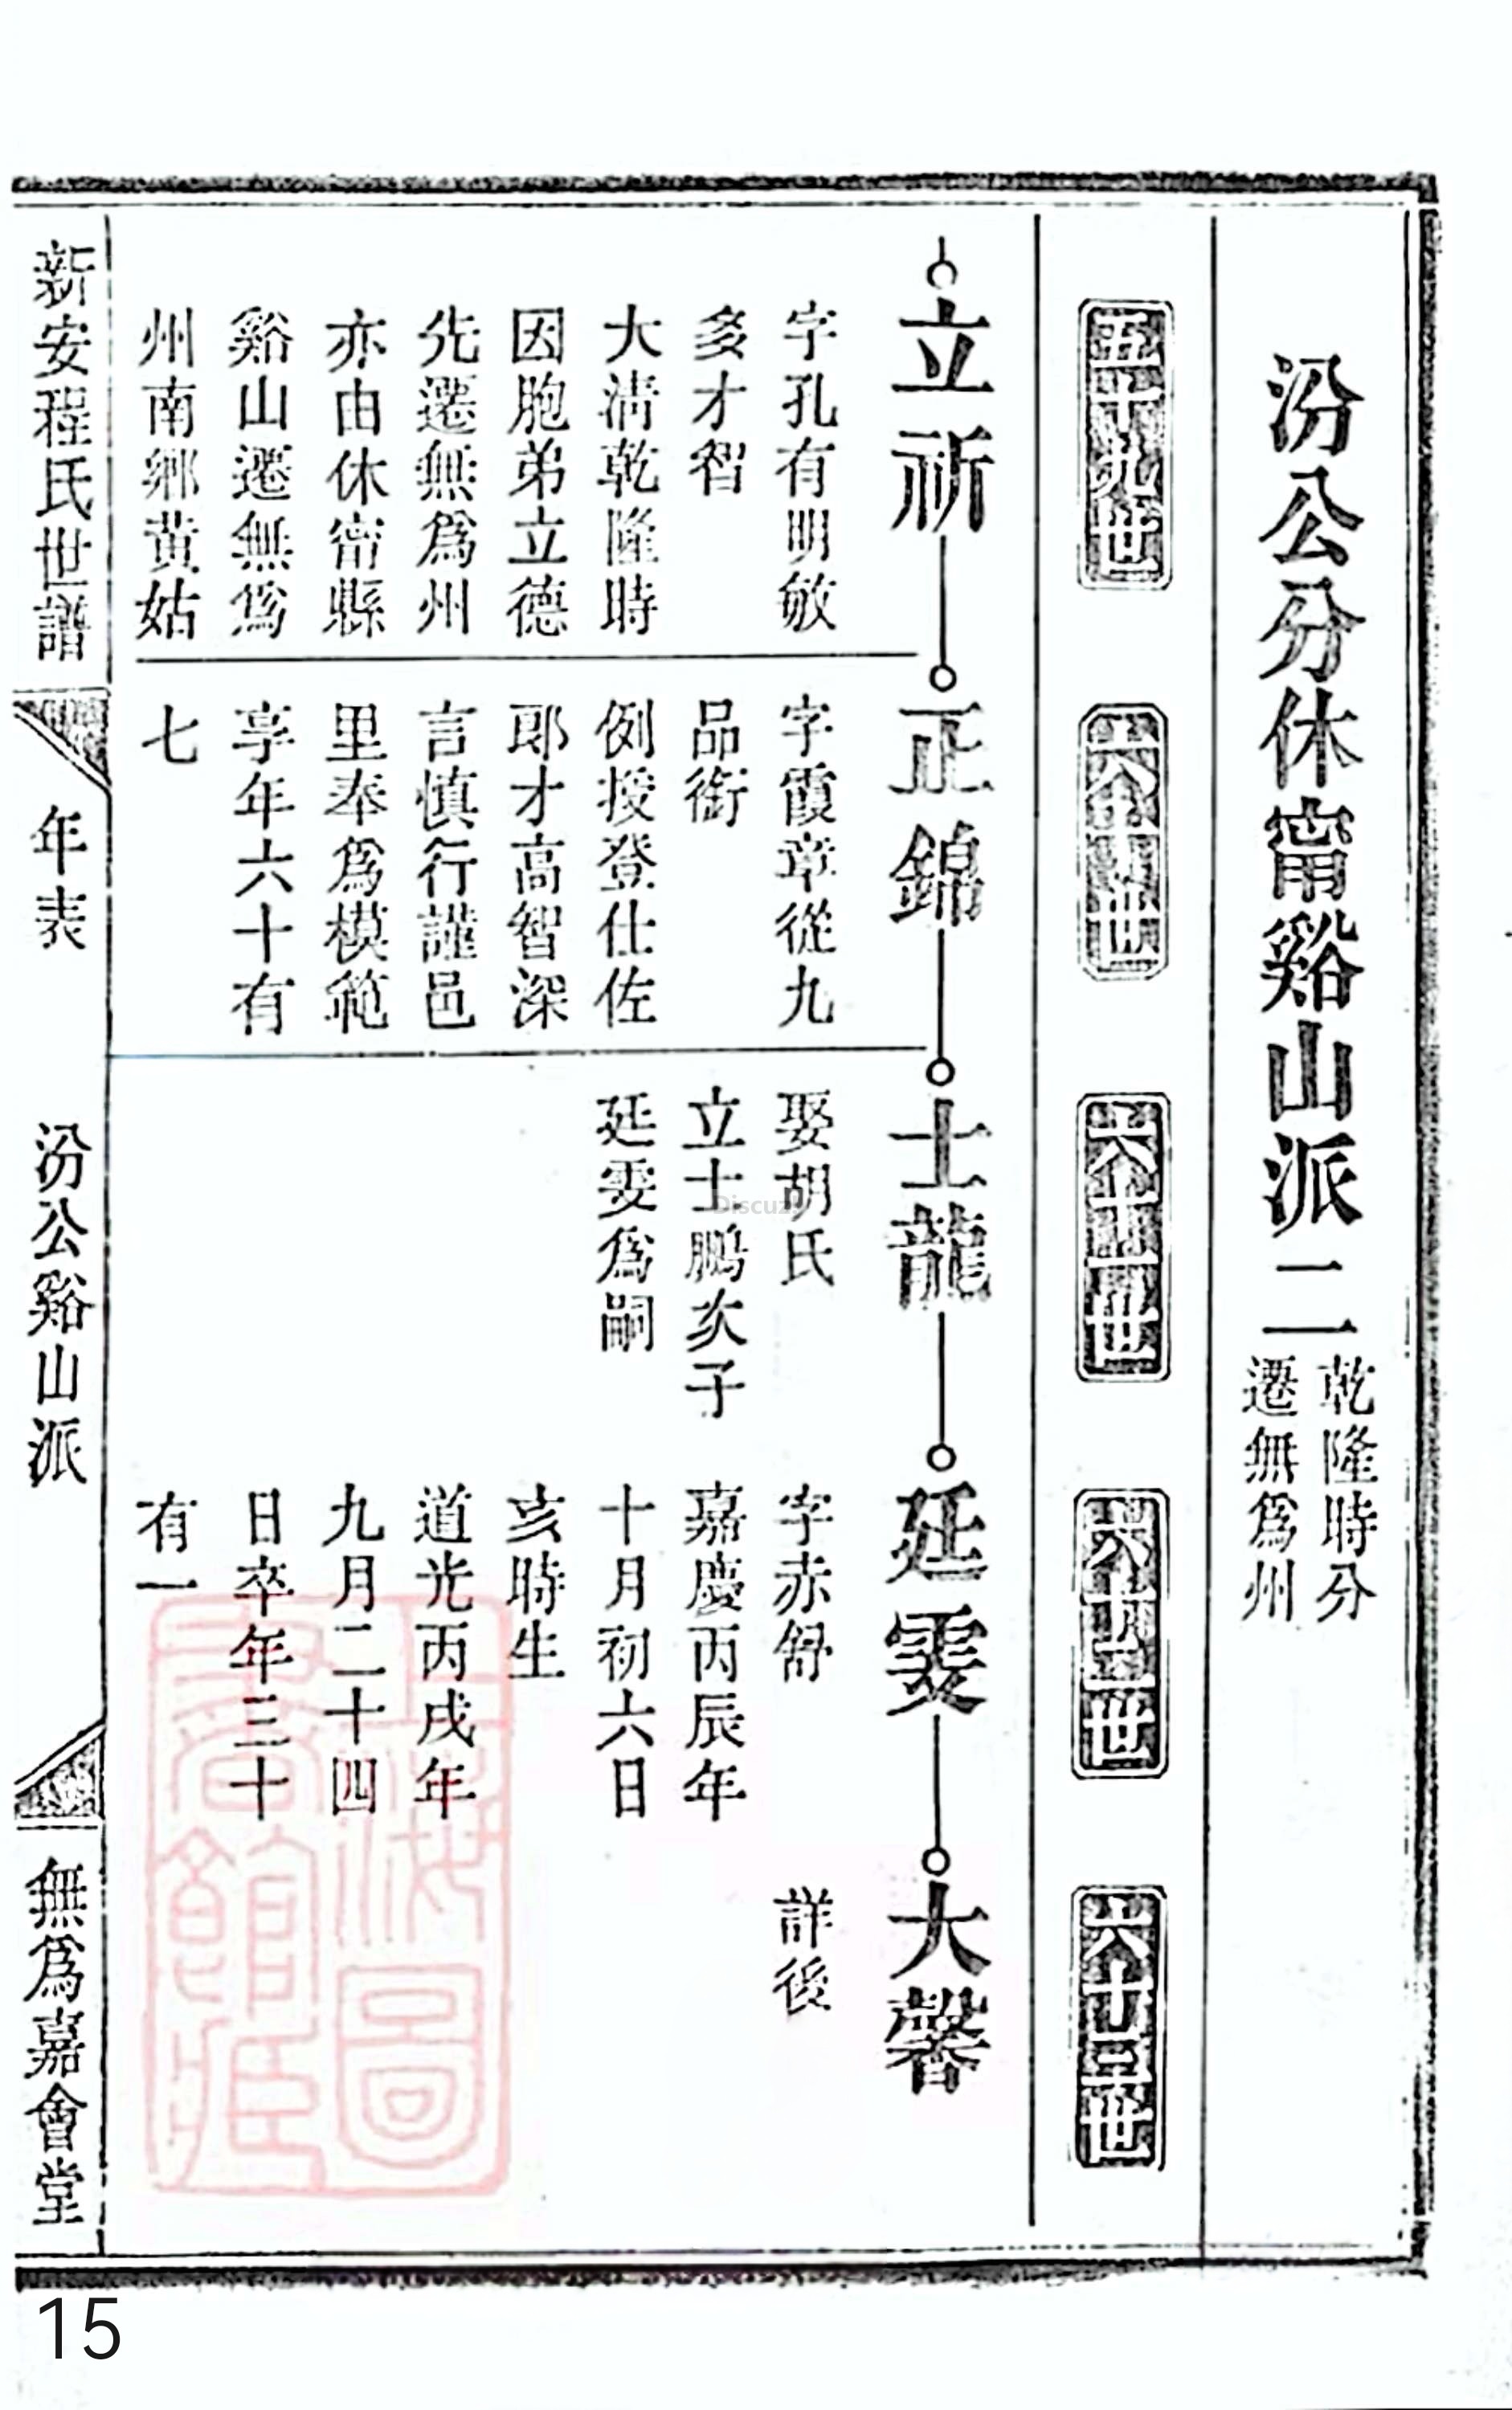 汾公分休甯谿山派二
乾隆時分
遷無爲州
五十九世
六十世
六十一世
六十二世
六十三世
立祈
正錦
士龍
廷雯
大馨
字孔有明敏
多才智
大清乾隆時
因胞弟立德
先遷無爲州
亦由休甯縣
谿山遷無爲
州南鄉黄姑
字霞章從九
品銜
例授登仕佐
郎才高智深
言慎行謹邑
里奉爲模範
享年六十有
七
娶胡氏
立士鵬次子
廷雯爲嗣
字赤舒
嘉慶丙辰年
十月初六日
亥時生
道光丙戌年
九月二十四
日卒年三十
有一
詳後
新安程氏世譜
年表
汾公谿山派
無爲嘉會堂
上海圖
書館藏
Discuz
15